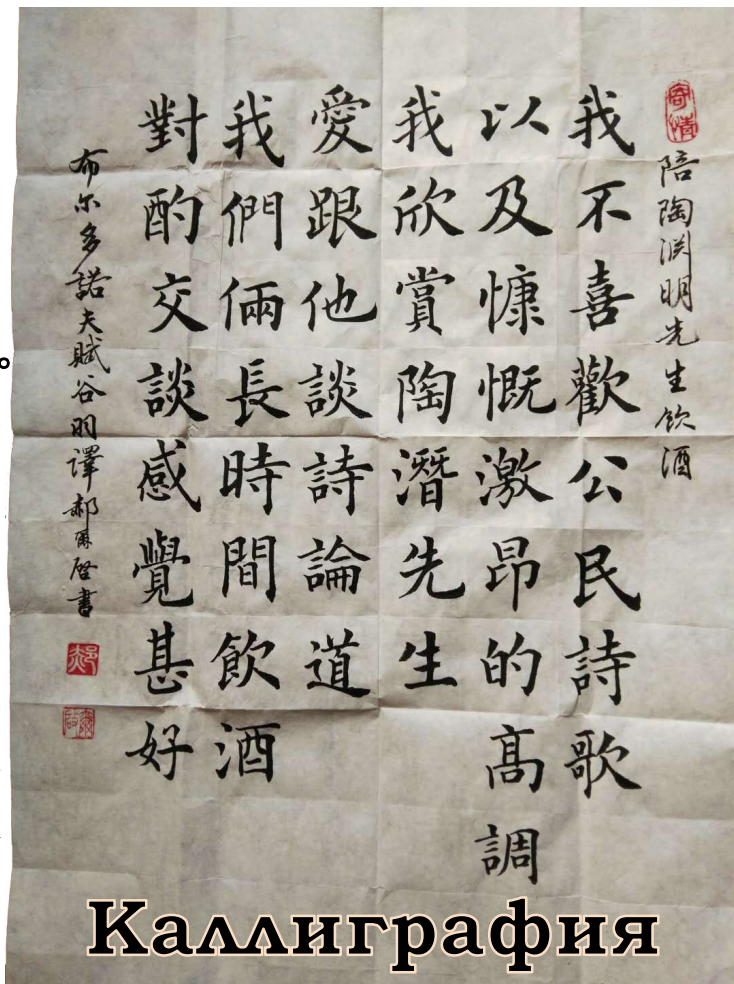 寄情
陪陶渊明先生飲酒
我不喜歡公民詩歌
以及慷慨激昂的高調
我欣賞陶潛先生
愛跟他談詩論道
我們倆長時間飲酒
對酌交談感覺甚好
布尔多諾夫賦谷羽譯郝爾啓書
Каллиграфия